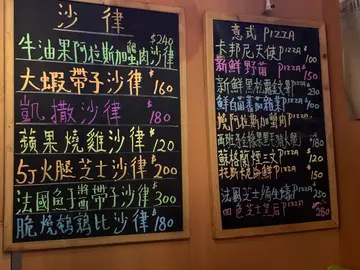 沙律
牛油果阿拉斯加蟹肉沙律 $240
大蝦帶子沙律 $160
凱撒沙律 $180
蘋果燒雞沙律 $120
5J火腿芝士沙律 $200
法國魚子醬帶子沙律 $300
脆燒鵪鶉比沙律 $180
意式PIZZA
卡邦尼天使PIZZA $100
新鮮野菌PIZZA $150
新鮮黑松露 PIZZA 230
鮮白菌 PIZZA
阿拉斯加 PIZZA
西班牙
蘇格蘭煙三文PIZZA 120
托斯卡 PIZZA 150
法國芝士 PIZZA 250
四色芝士 PIZZA 250